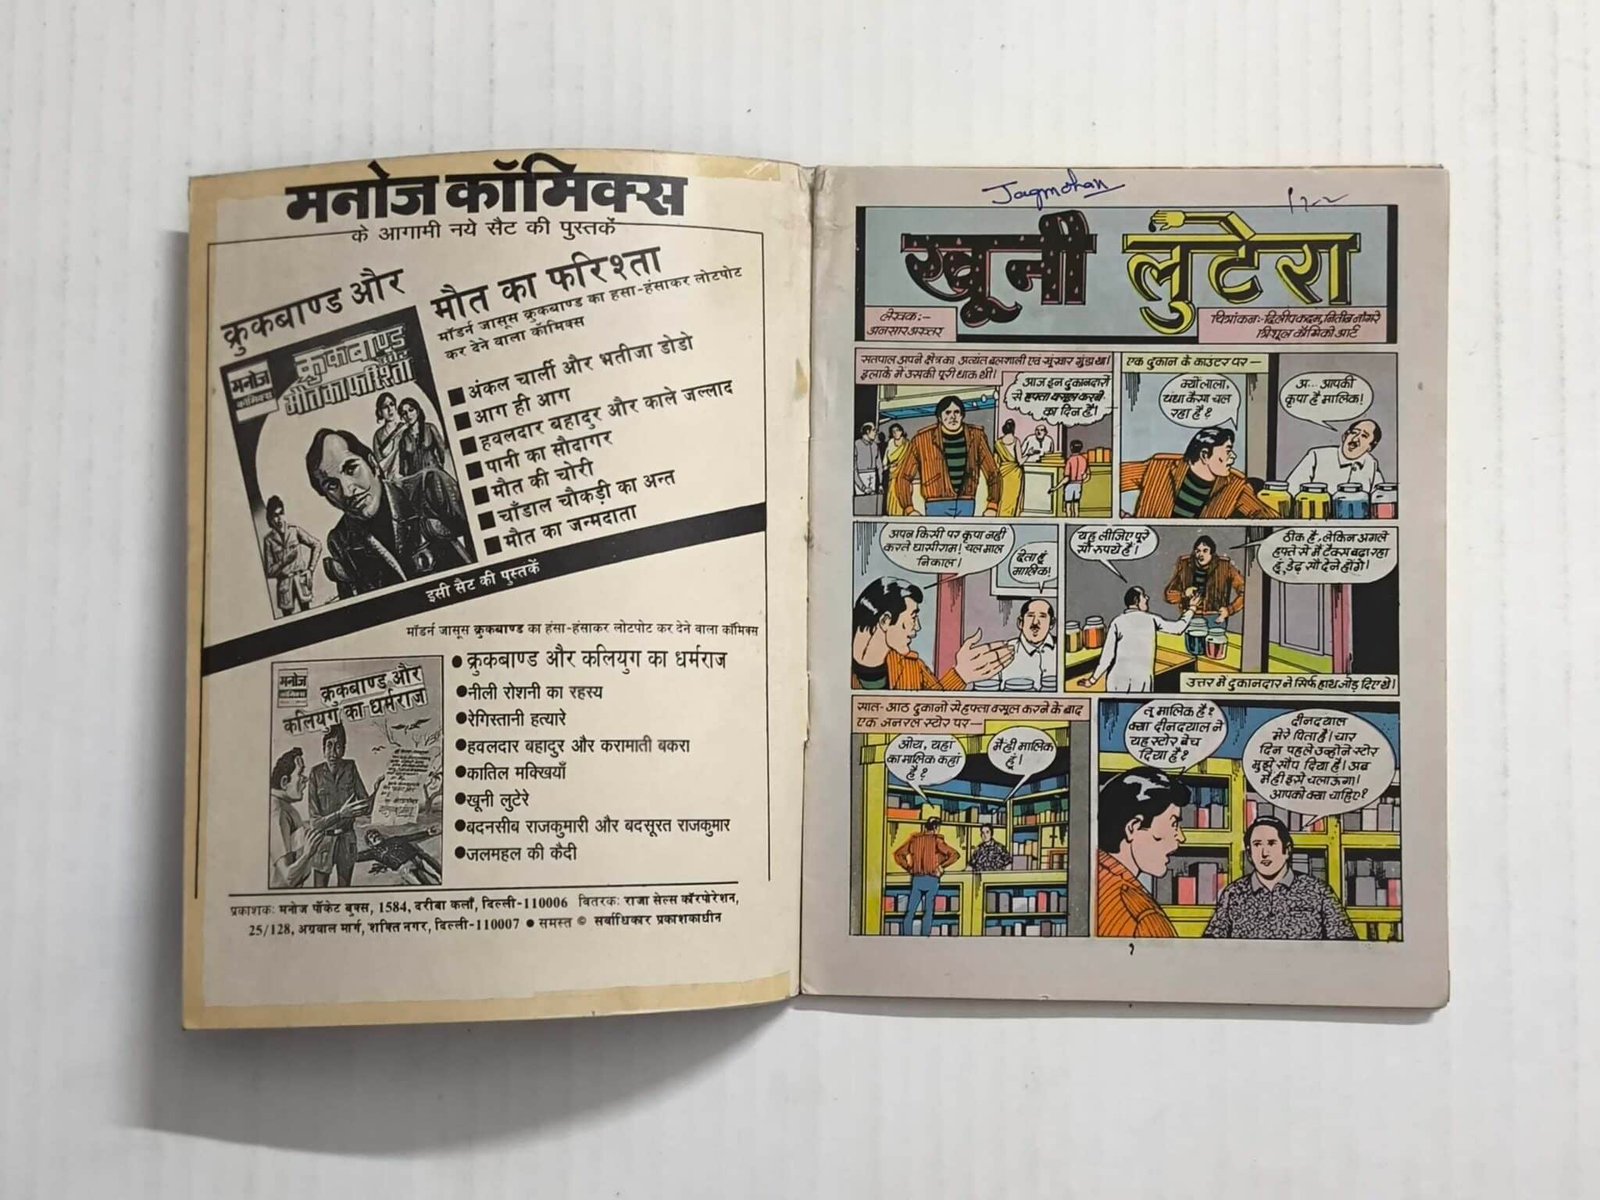 मनोज कॉमिक्स
के आगामी नये सैट की पुस्तकें
क्रुकबाण्ड और
मौत का फरिश्ता
मॉडर्न जासूस क्रुकबाण्ड का हसा-हंसाकर लोटपोट
कर देने वाला कॉमिक्स
मनोज
कॉमिक्स
क्रुकबाण्ड
और
मौत का फरिश्ता
■ अंकल चार्ली और भतीजा डोडो
■ आग ही आग
■ हवलदार बहादुर और काले जल्लाद
■ पानी का सौदागर
■ मौत की चोरी
■ चाँडाल चौकड़ी का अन्त
■ मौत का जन्मदाता
इसी सैट की पुस्तकें
मॉडर्न जासूस क्रुकबाण्ड का हंसा-हंसाकर लोटपोट कर देने वाला कॉमिक्स
मनोज
कॉमिक्स
क्रुकबाण्ड और
कलियुग का धर्मराज
● क्रुकबाण्ड और कलियुग का धर्मराज
● नीली रोशनी का रहस्य
● रेगिस्तानी हत्यारे
● हवलदार बहादुर और करामाती बकरा
● कातिल मक्खियाँ
● खूनी लुटेरे
● बदनसीब राजकुमारी और बदसूरत राजकुमार
● जलमहल की कैदी
प्रकाशक: मनोज पॉकेट बुक्स, 1584, दरीबा कलाँ, दिल्ली-110006 वितरक: राजा सेल्स कॉरपोरेशन,
25/128, अग्रवाल मार्ग, शक्ति नगर, दिल्ली-110007 ● समस्त © सर्वाधिकार प्रकाशकाधीन
Jagmohan
खूनी लुटेरा
लेखक:-
अनसार अख्तर
चित्रांकन:- दिलीप कदम, नितीन नोगरे
त्रिशूल कॉमिको आर्ट
सतपाल अपने क्षेत्र का अत्यंत बलशाली एवं खूंखार गुंडा था।
इलाके में उसकी पूरी धाक थी।
आज इन दुकानदारों
से हफ्ता वसूल करने
का दिन है।
एक दुकान के काउंटर पर —
क्यों लाला,
धंधा कैसा चल
रहा है?
अ... आपकी
कृपा है मालिक!
अपन किसी पर कृपा नहीं
करते घासीराम! चल माल
निकाल।
देता हूं
मालिक!
यह लीजिए पूरे
सौ रुपये हैं।
ठीक है, लेकिन अगले
हफ्ते से मैं टैक्स बढ़ा रहा
हूं, डेढ़ सौ देने होंगे।
उत्तर में दुकानदार ने सिर्फ हाथ जोड़ दिए थे।
सात-आठ दुकानों से हफ्ता वसूल करने के बाद
एक जनरल स्टोर पर —
ओय, यहां
का मालिक कहां
है?
मैं ही मालिक
हूं।
तू मालिक है?
क्या दीनदयाल ने
यह स्टोर बेच
दिया है?
दीनदयाल
मेरे पिता हैं। चार
दिन पहले उन्होंने स्टोर
मुझे सौंप दिया है। अब
मैं ही इसे चलाऊंगा।
आपको क्या चाहिए?
१